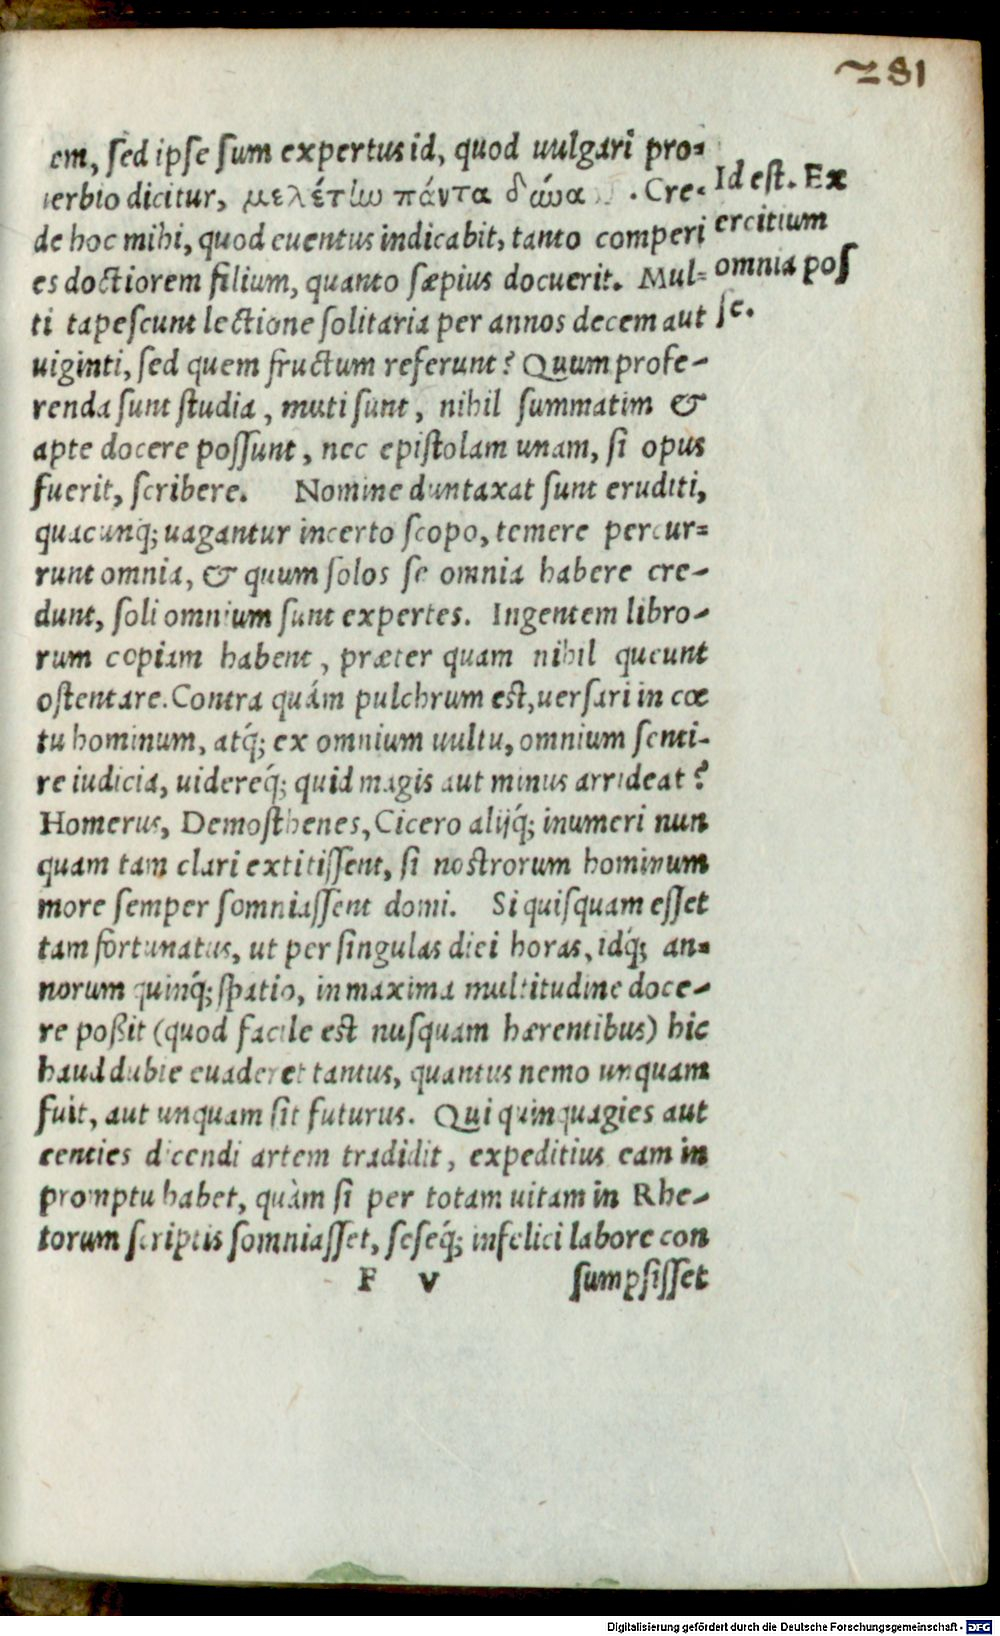 281
em, sed ipse sum expertus id, quod uulgari pro-
uerbio dicitur, μελέτῃ πάντα . Cre-
de hoc mihi, quod euentus indicabit, tanto comperi
es doctiorem filium, quanto sæpius docuerit. Mul-
ti tapescunt lectione solitaria per annos decem aut
uiginti, sed quem fructum referunt? Quum profe-
renda sunt studia, muti sunt, nihil summatim &
apte docere possunt, nec epistolam unam, si opus
fuerit, scribere. Nomine duntaxat sunt eruditi,
quacunq; uagantur incerto scopo, temere percur-
runt omnia, & quum solos se omnia habere cre-
dunt, soli omnium sunt expertes. Ingentem libro-
rum copiam habent, præter quam nihil queunt
ostentare. Contra quám pulchrum est, uersari in cœ
tu hominum, atq́; ex omnium uultu, omnium senti-
re iudicia, uidereq́; quid magis aut minus arrideat?
Homerus, Demosthenes, Cicero alijq́; inumeri nun
quam tam clari extitissent, si nostrorum hominum
more semper somniassent domi. Si quisquam esset
tam fortunatus, ut per singulas diei horas, idq́; an-
norum quinq́; spatio, in maxima multitudine doce-
re poßit (quod facile est nusquam hærentibus) hic
haud dubie euaderet tantus, quantus nemo unquam
fuit, aut unquam sit futurus. Qui quinquagies aut
centies dicendi artem tradidit, expeditius eam in
promptu habet, quàm si per totam uitam in Rhe-
torum scriptis somniasset, seseq́; infelici labore con
F V sumpsisset
Id est. Ex
ercitium
omnia pos
se.
Digitalisierung gefördert durch die Deutsche Forschungsgemeinschaft - DFG